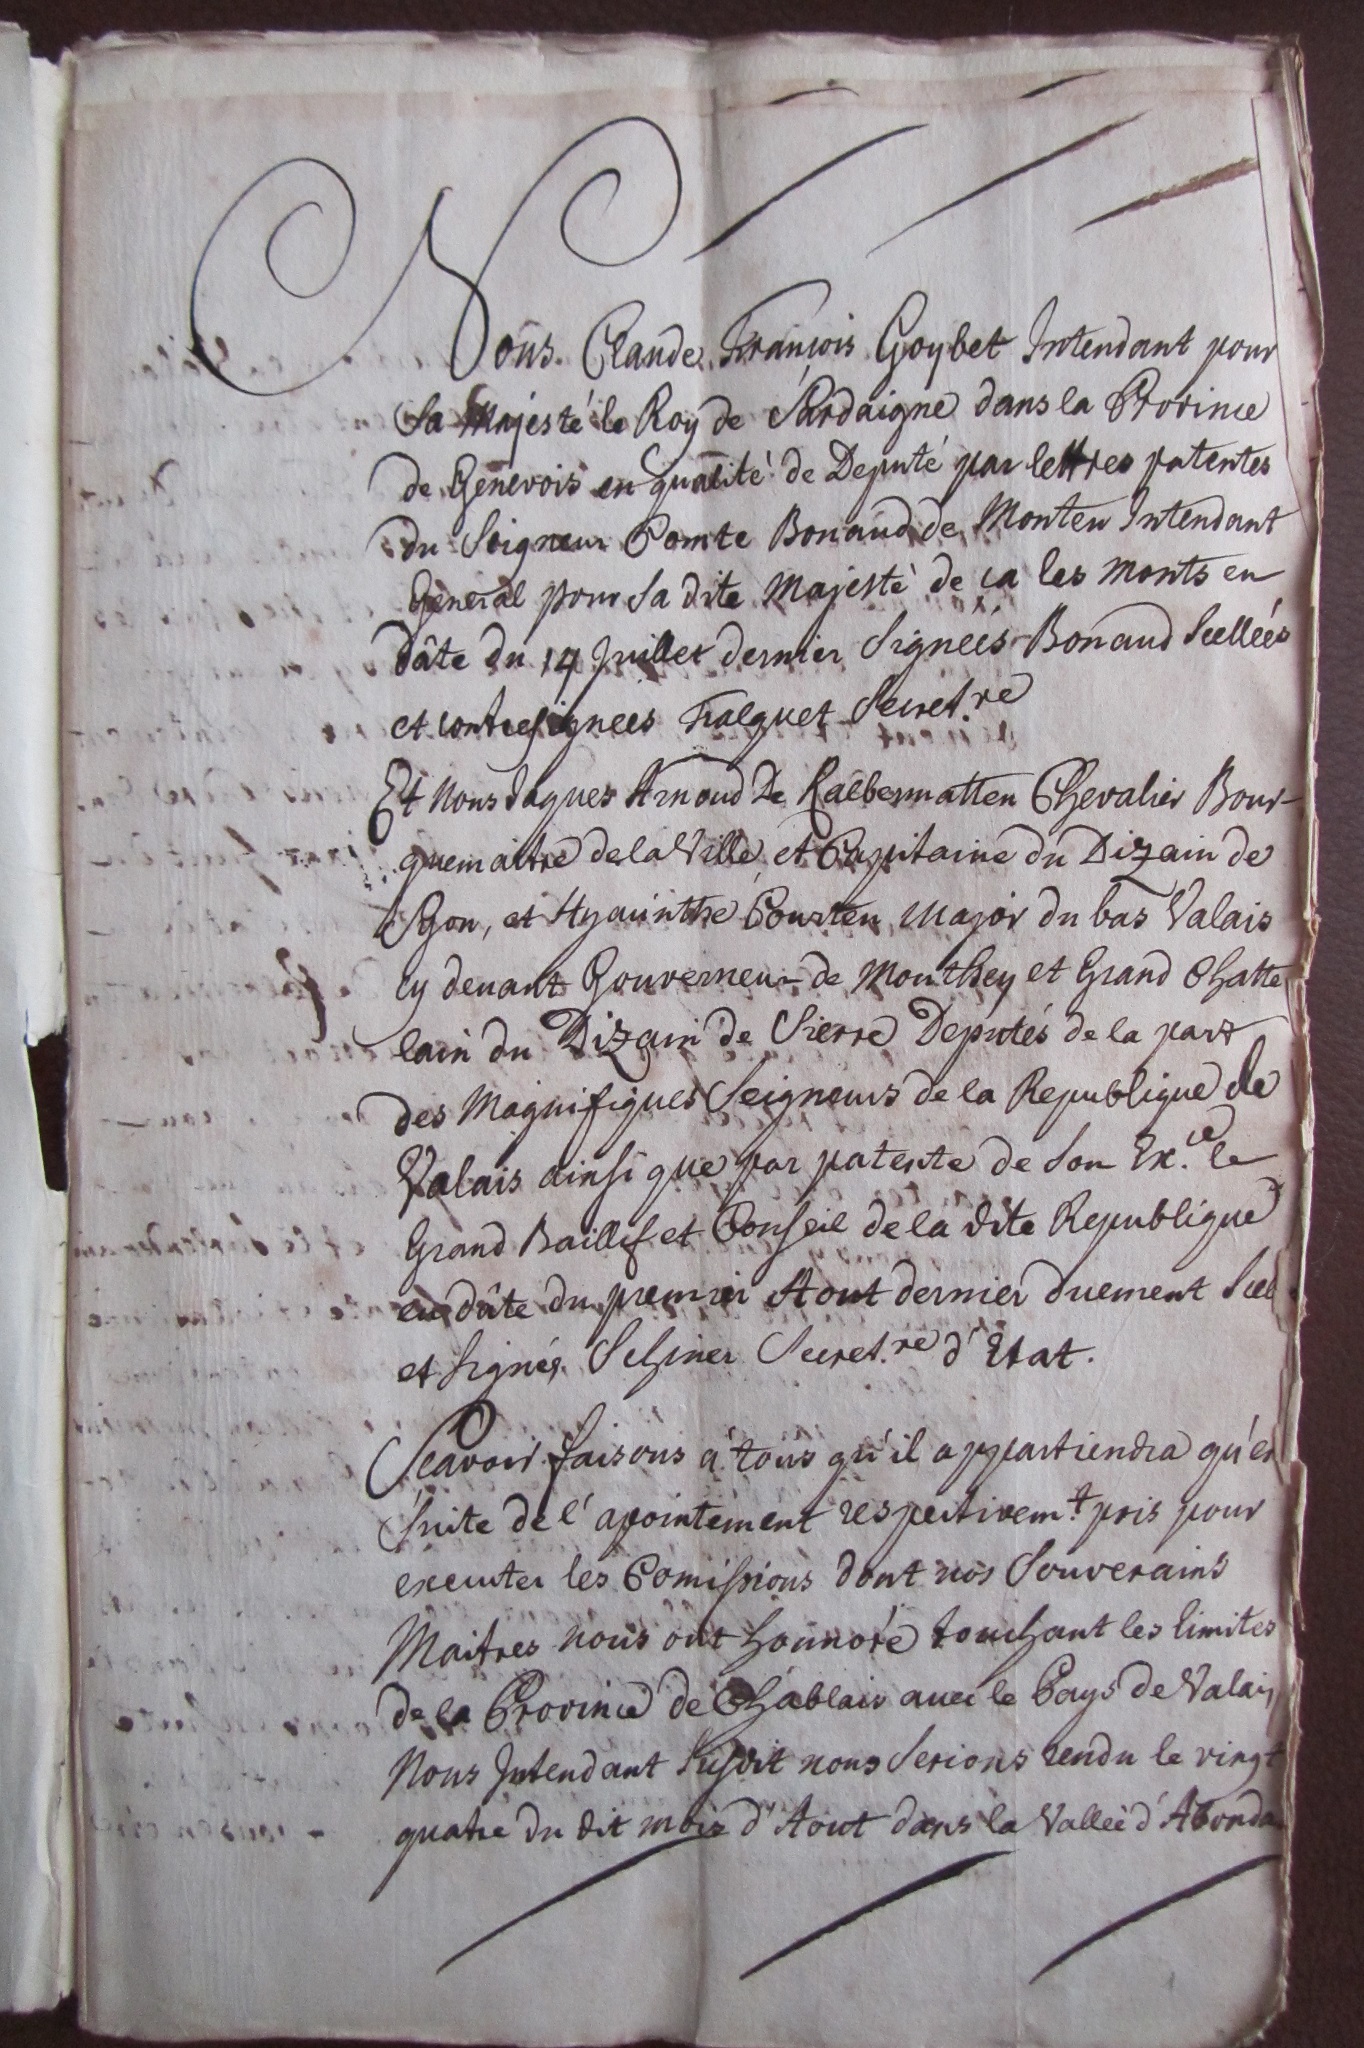 Nous Claude François Goybet Intendant pour
Sa Majesté le Roy de Sardaigne dans la Province
de Genevois en qualité de Deputé par lettres patentes
du Seigneur Comte Bonaud de Monteu Intendant
General pour Sa dite Majesté de ca les monts en
dâte du 14 Juillet dernier Signeés Bonaud Scelleés
et contresignees Falquet Secret.re
Et Nous Jaques Arnoud De Kalbermatten Chevalier Bour-
guemaitre de la Ville, et Capitaine du Dizain de
Syon, et Hyacinthe Courten Major du bas Valais
cy devant Gouverneur de Monthey et Grand Chatte
lain du Dizain de Sierre Deputés de la part
des Magnifiques Seigneurs de la Republique de
Valais ainsi que par patente de Son Ex.ce le
Grand Baillif et Conseil de la dite Republique
en dâte du premier Aout dernier duement Scel
et Signés Schiner Secret.re d'Etat.
Scavoir faisons à tous qu'il appartiendra qu'en
Suite de l'apointement respectivem.t pris pour
executer les Comissions dont nos Souverains
Maitres nous ont honnoré touchant les limites
de la Province de Chablais avec le Pays de Valais
Nous Intendant Susdit nous Serions rendu le vingt
quatre du dit mois d'Aout dans la Valleé d'Abonda